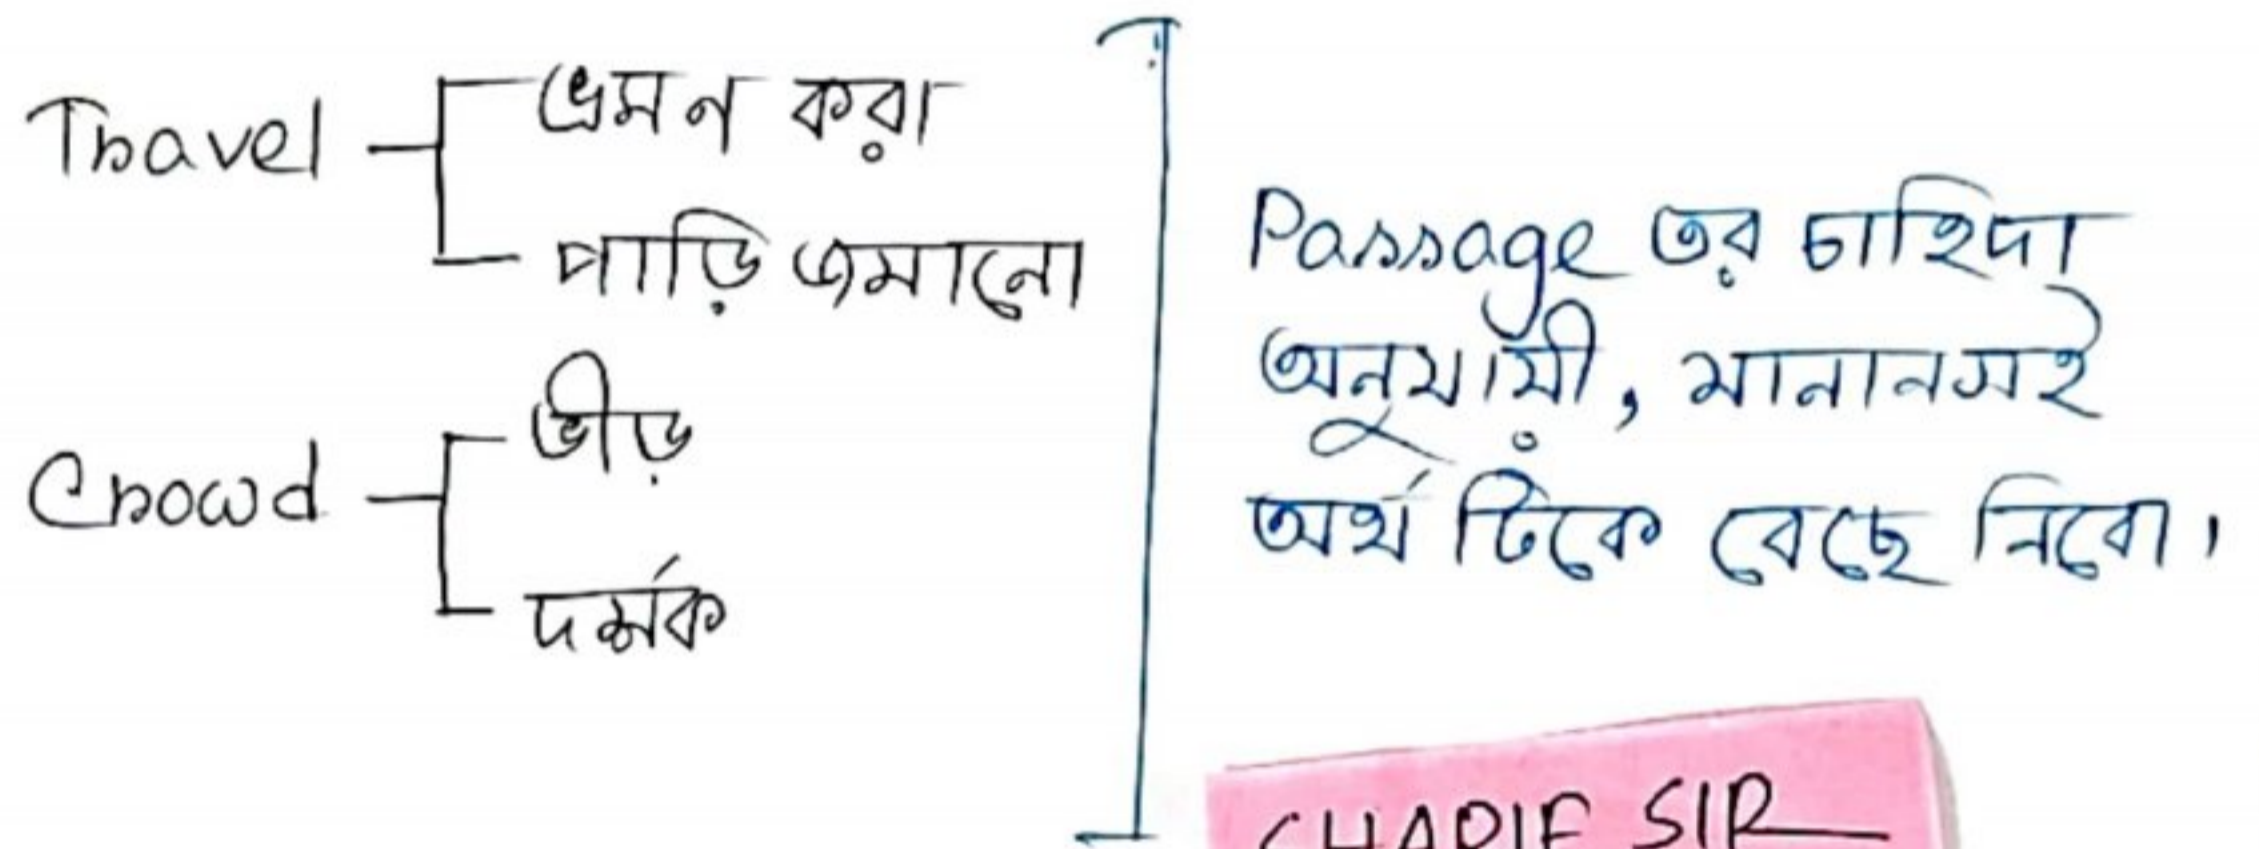 Travel
ভ্রমন করা
পাড়ি জমানো
Crowd
ভীড়
দর্শক
Passage এর চাহিদা
অনুযায়ী, মানানসই
অর্থ টিকে বেছে নিবো।
SIR